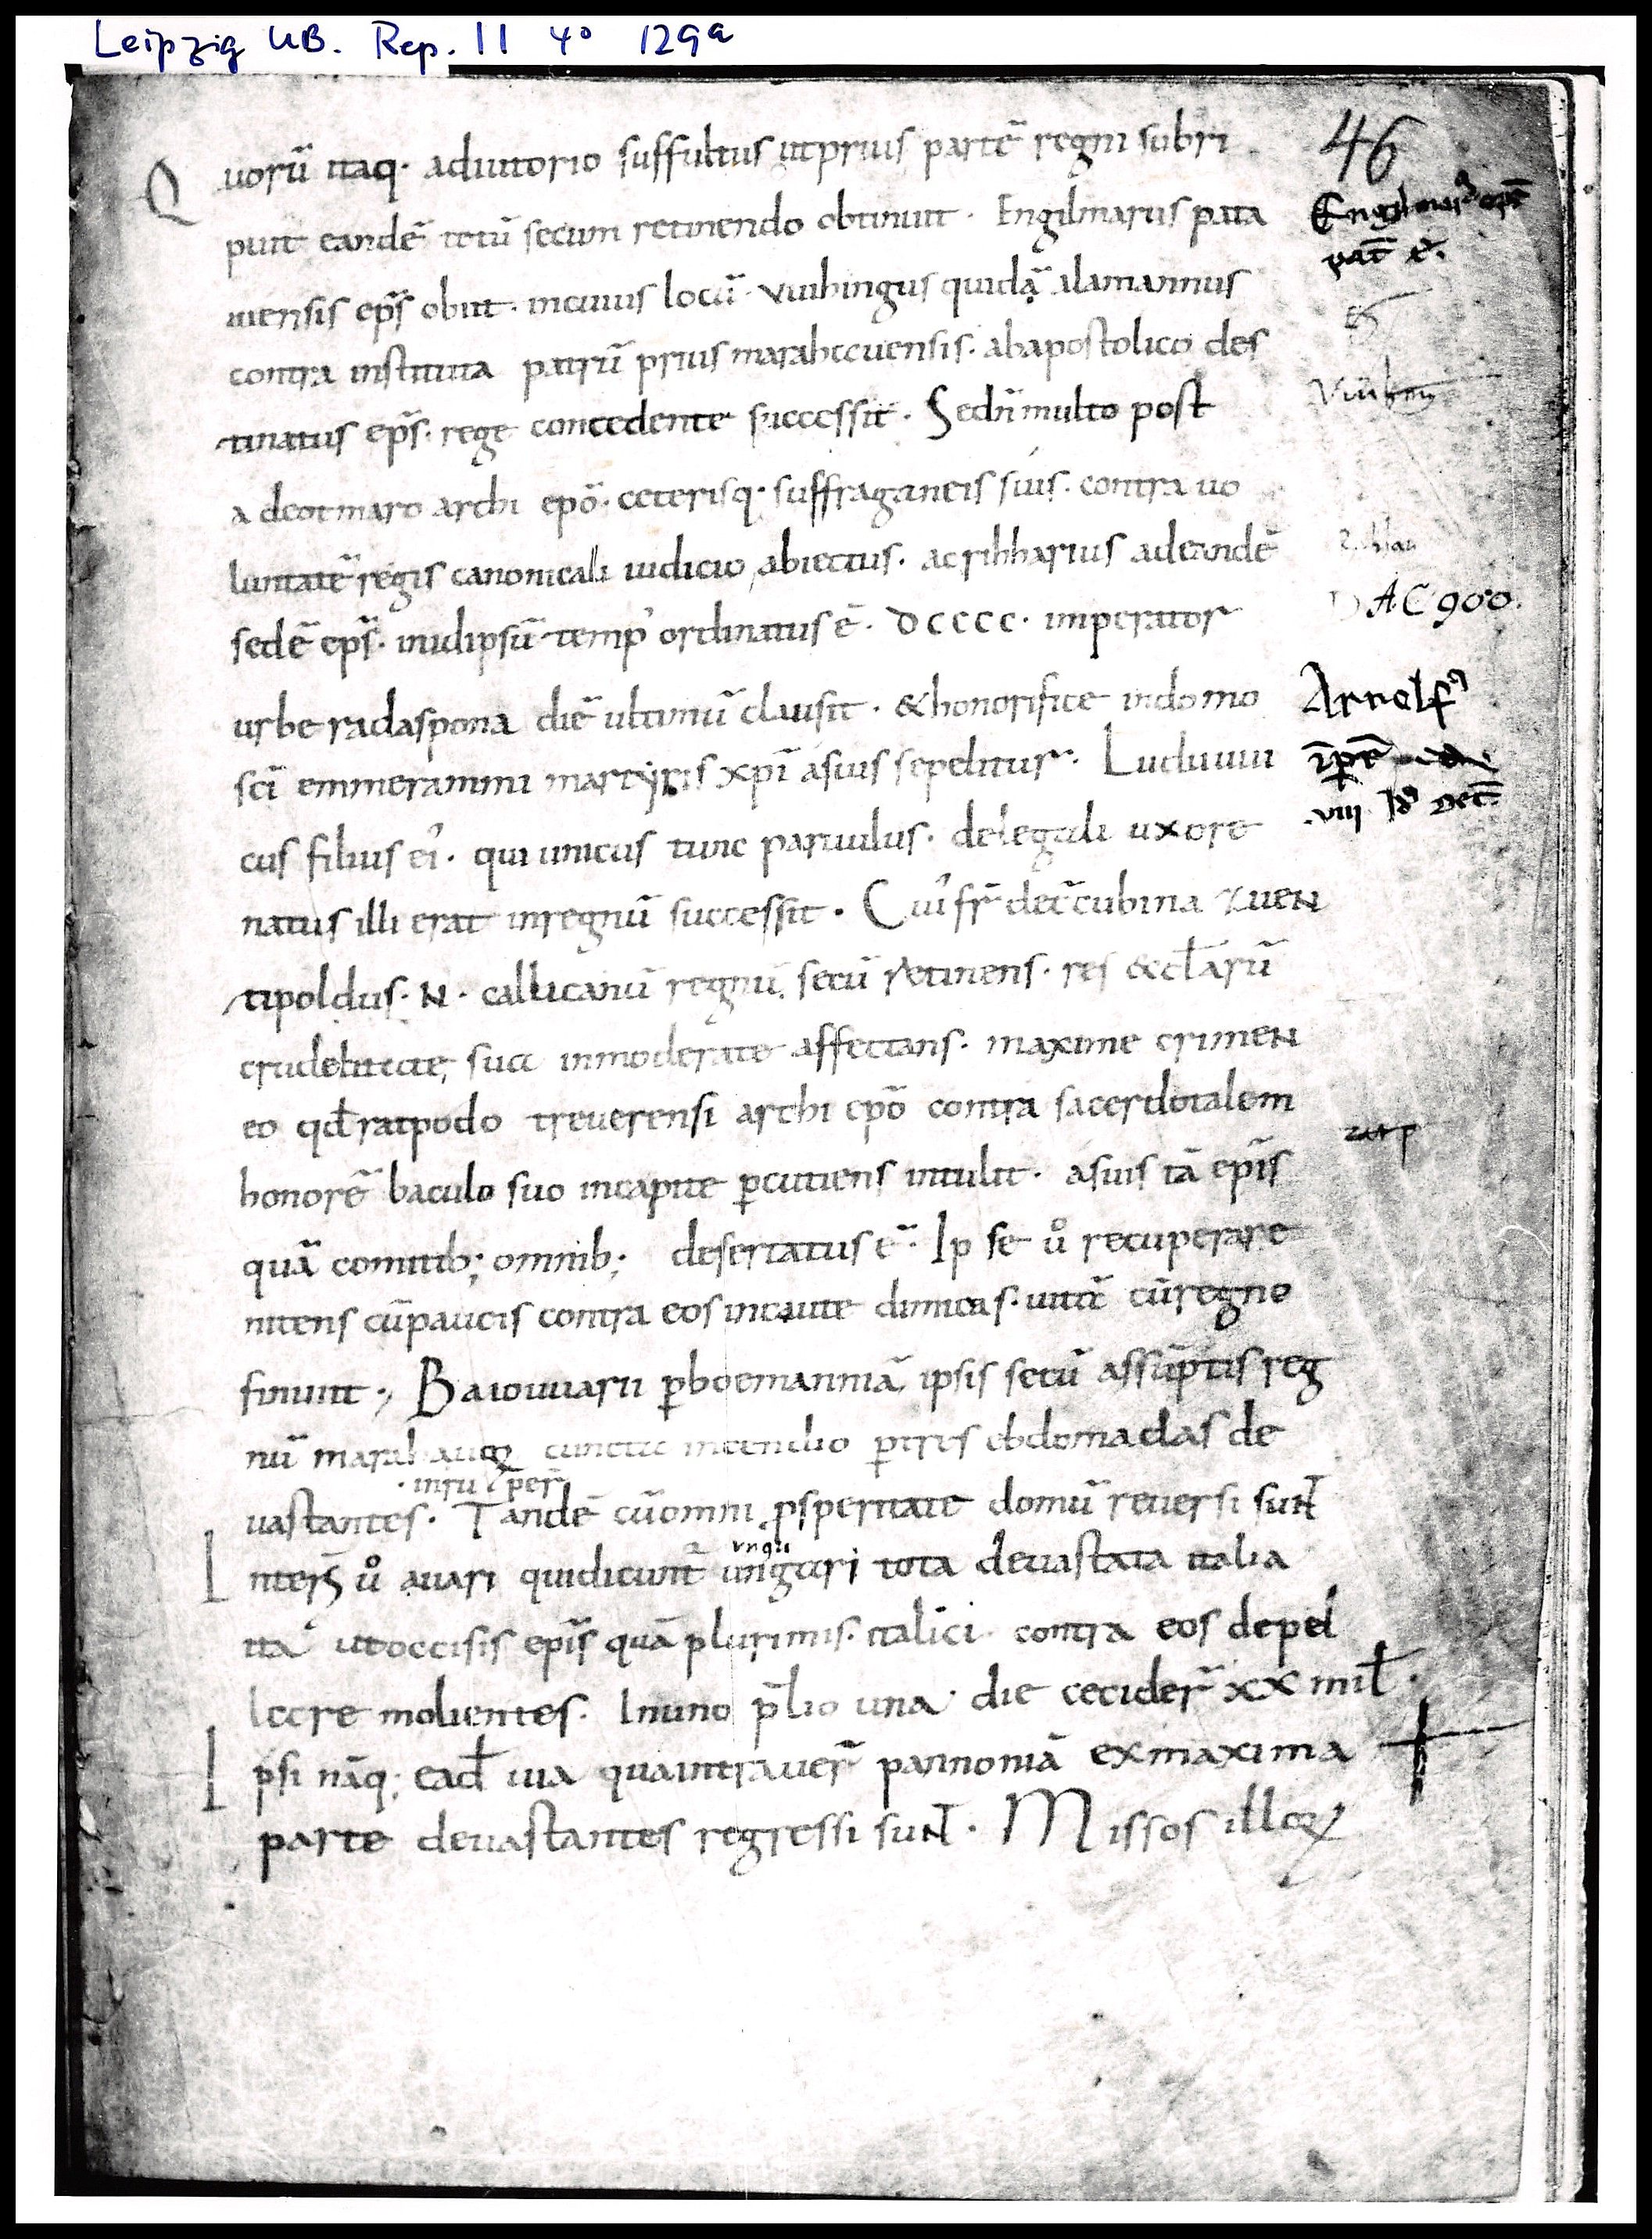 Leipzig UB. Rep. II 4° 129a
46
Quorū itaq· adiutorio suffultus utprius partē regni subri
puit eandē totū secum retinendo obtinuit · Engilmarus pata
uiensis ep̄s obiit · incuius locū · vuihingus quidā alamannus
contra instituta patrū prius marahccuensis · abapostolico des
tinatus ep̄s · rege concedente successit · Sedn̄multo post
a deotmaro archi epō · ceterisq· suffraganeis suis · contra uo
luntatē regis canonicali iudicio abiectus · acrihharius adeandē
sedē ep̄s · inidipsū temp' ordinatus ē · DCCCC · imperator
urbe radaspona diē ultimū clausit · & honorifice indomo
sc̄i emmerammi martyris xp̄i asuis sepelitur · Ludiuui
cus filius ei' · qui unicus tunc paruulus · delegali uxore
natus illi erat inregnū successit · Cui' fr̄ decc̄ubina zuen
tipoldus · N · callicanū regnū secū retinens · res &cl̄arū
crudelitate sua inmoderate affectans · maxime crimen
eo qd̄ ratpodo treuerensi archi epō contra sacerdotalem
honorē baculo suo incapite p̄cutiens intulit · asuis tā ep̄is
quā comitib; omnib; desertatus ē · Ip se ů recuperare
nitens cū paucis contra eos incaute dimicas · uitā cū regno
finiuit · Baiouuarii p̄ boemanniā ipsis secū assūptis reg
nū marahauorꝝ cuncta incendio p̄tres ebdomadas de
uastantes · Tandē cū omni p̄speritate domū reuersi sunt̄
vngu
Interī ů auari quidicunt̄ ungari tota deuastata italia
ita utoccisis ep̄is quā plurimis · italici contra eos depel
lere molientes · Inuno p̄lio una die cecider̄ xx mil̄ ·
Ipsi nāq; ead̄ uia quaintrauer̄ pannoniā exmaxima
parte deuastantes regressi sunt̄ · Missos illorꝝ
pat̄
AC 900.
Arnolf'
viii Id'